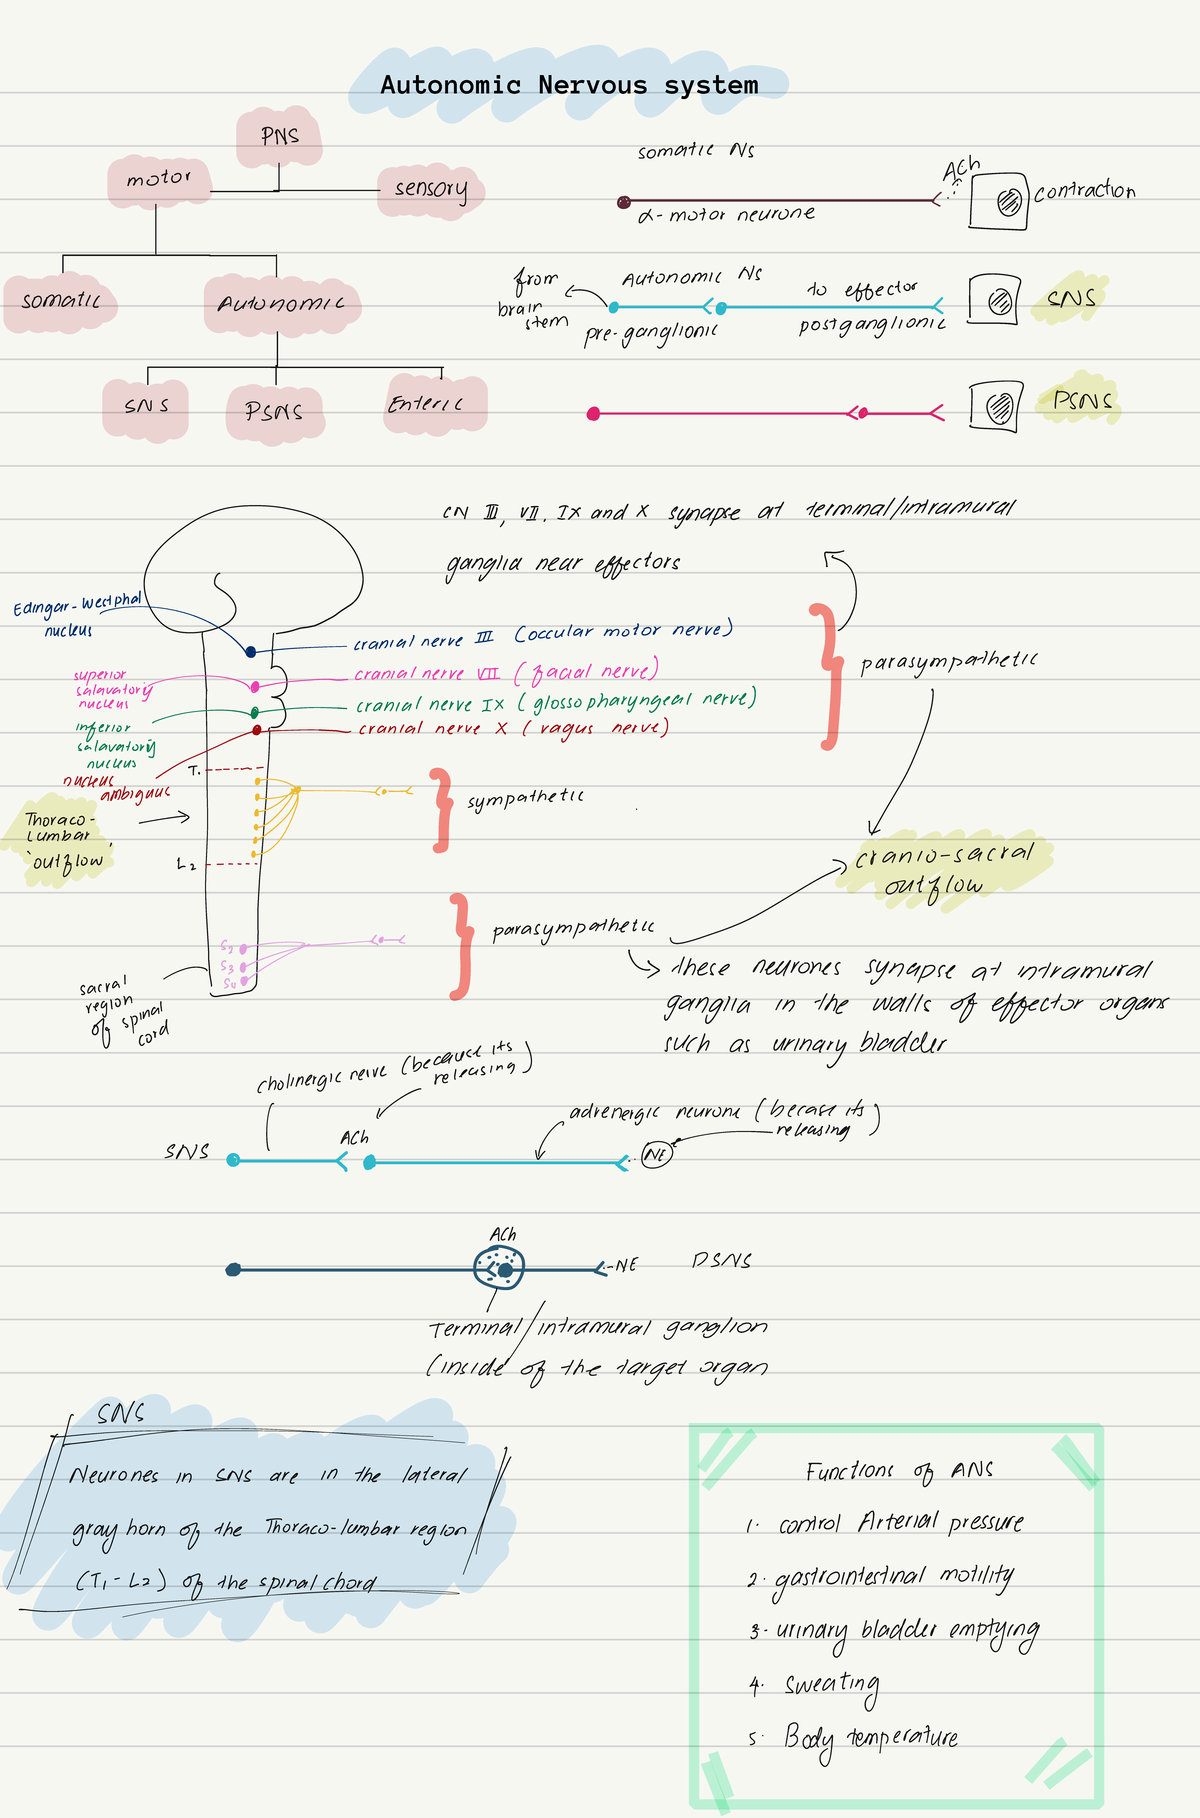 Autonomic Nervous system
PNS
motor
sensory
somatic
Autonomic
SNS
PSNS
Enteric
somatic Ns
ACh
α-motor neurone
contraction
from
brain
stem
Autonomic Ns
to effector
pre-ganglionic
postganglionic
SNS
PSNS
CN III, VII, IX and X synapse at terminal/intramural
ganglia near effectors
Edingar-Westphal
nucleus
cranial nerve III (occular motor nerve)
superior
salavatory
nucleus
cranial nerve VII (facial nerve)
inferior
salavatory
nucleus
cranial nerve IX (glossopharyngeal nerve)
nucleus
ambiguus
cranial nerve X (vagus nerve)
parasympathetic
T1
Thoraco-
Lumbar
'outflow'
sympathetic
L2
cranio-sacral
outflow
parasympathetic
S2
S3
S4
sacral
region
of spinal
cord
These neurones synapse at intramural
ganglia in the walls of effector organs
such as urinary bladder
cholinergic nerve (because its
releasing)
adrenergic neurone (becase its
releasing)
SNS
ACh
NE
ACh
-NE
PSNS
Terminal/intramural ganglion
(inside of the target organ
SNS
Neurones in SNS are in the lateral
gray horn of the Thoraco-lumbar region
(T1-L2) of the spinal chord
Functions of ANS
1. control Arterial pressure
2. gastrointestinal motility
3. urinary bladder emptying
4. sweating
5. Body temperature